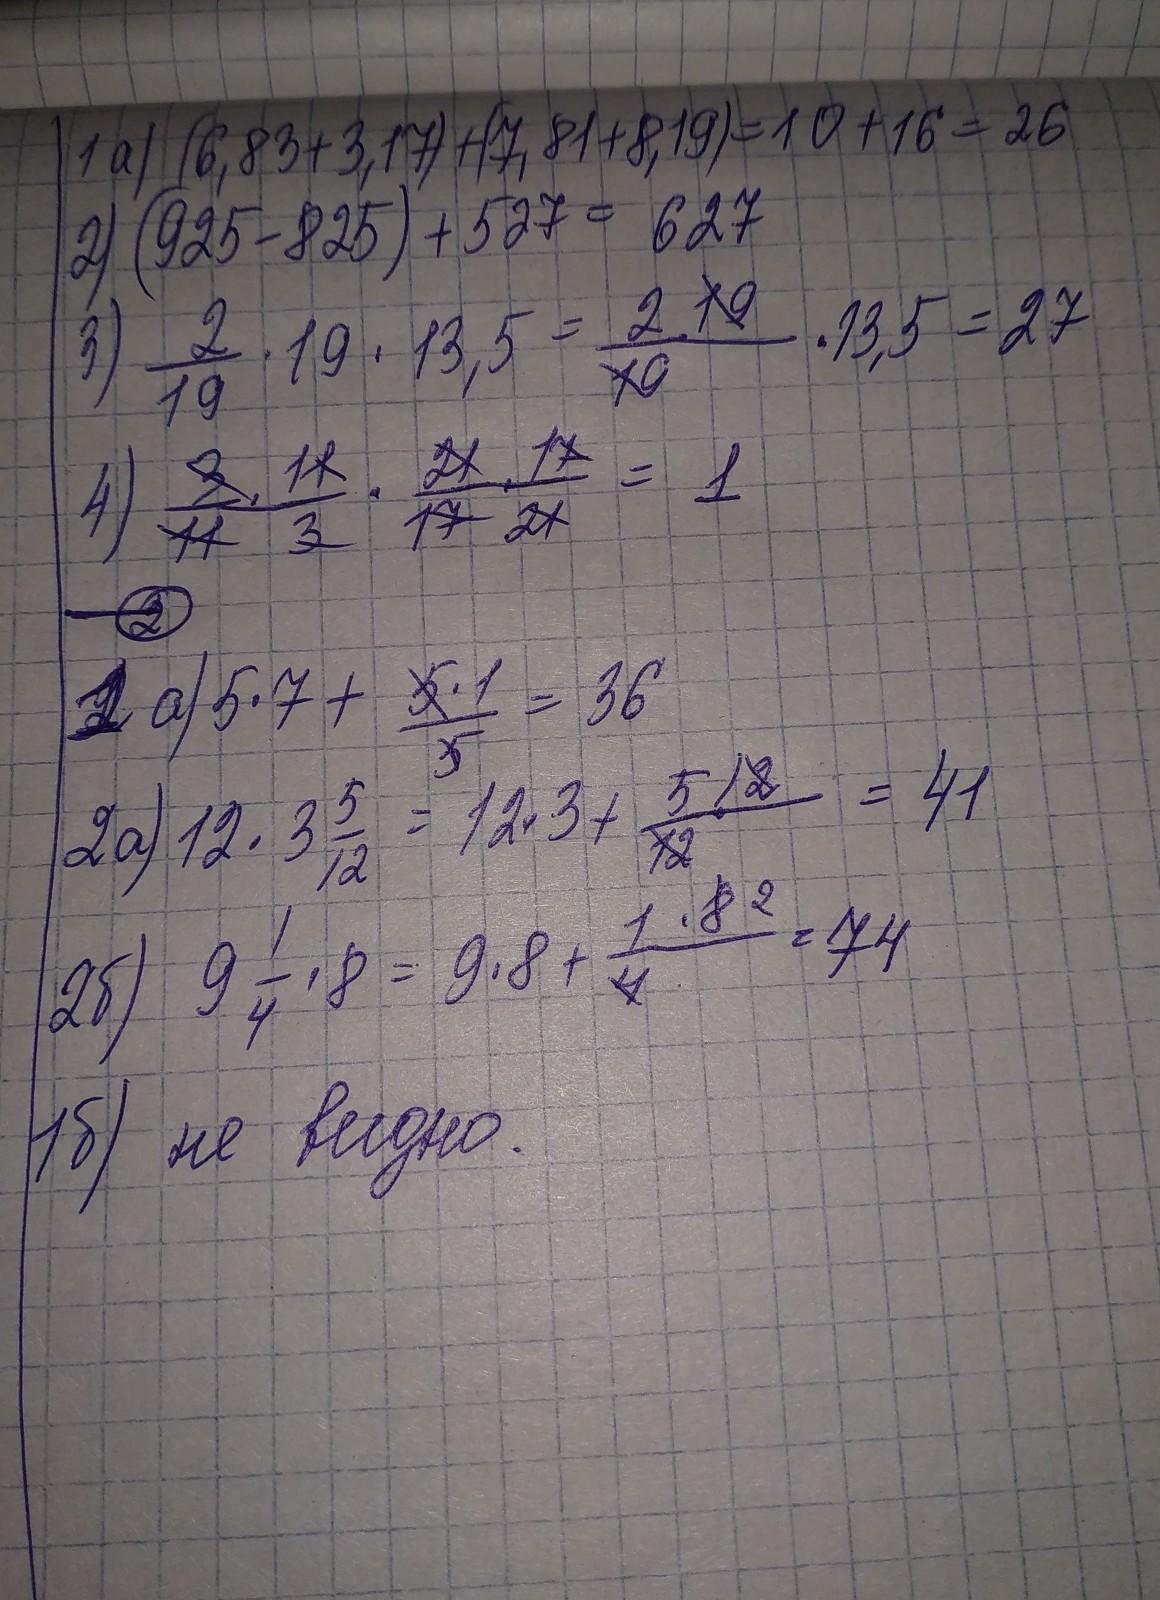 1а) (6,83+3,17)+(7,81+8,19)=10+16=26
2) (925-825)+527= 627
3) 2/19 · 19 · 13,5 = 2·19/19 · 13,5 = 27
4) 3/11 · 11/3 · 21/17 · 17/21 = 1
2
1 а) 5·7+ 5·1/5 = 36
2а) 12· 3 5/12 = 12·3+ 5·12/12 = 41
2б) 9 1/4 · 8 = 9·8+ 1·8 2/4 = 74
1б) не видно.